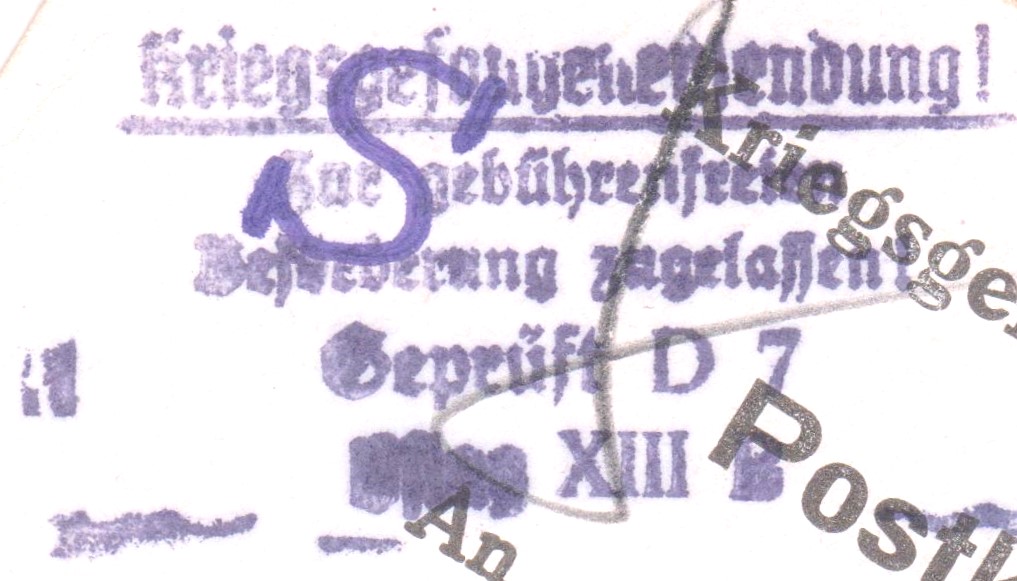 Kriegsgefangenensendung!
S
Zur gebührenfreien
Beförderung zugelassen!
Geprüft D 7
XIII B
Kriegsgef
Post
An